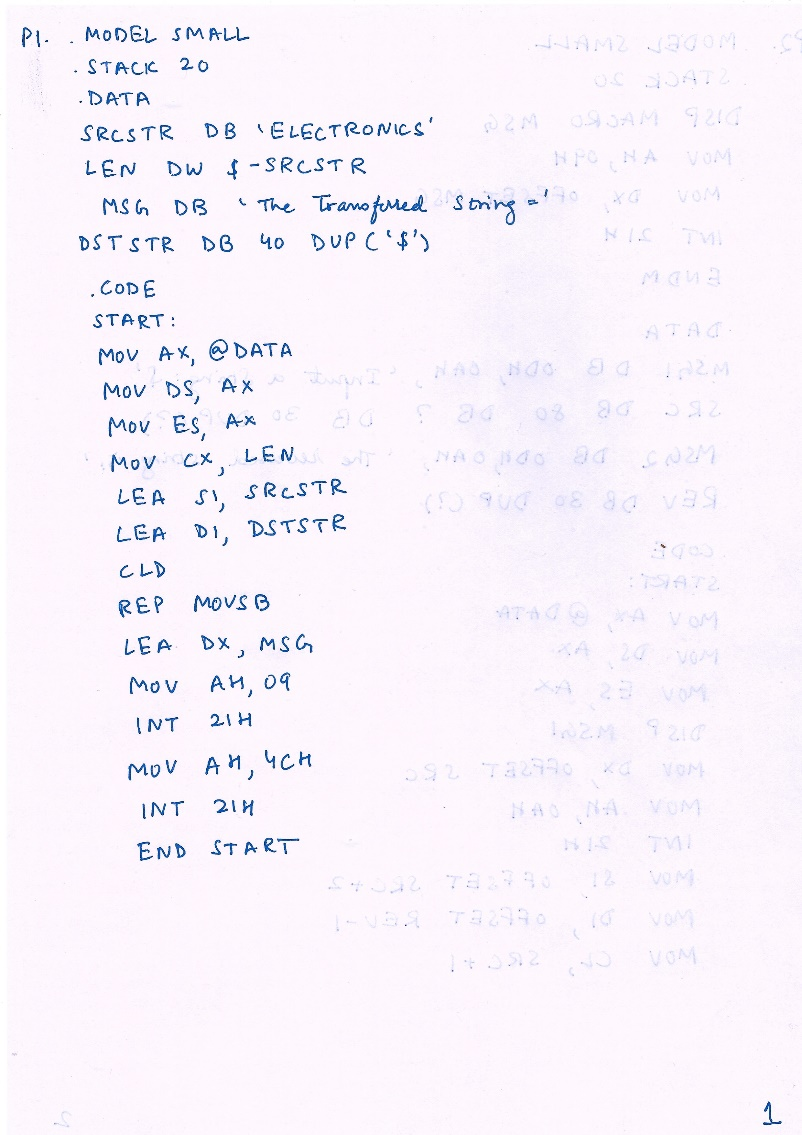 P1. . MODEL SMALL
. STACK 20
.DATA
SRCSTR DB 'ELECTRONICS'
LEN DW $-SRCSTR
MSG DB 'The Transferred String ='
DSTSTR DB 40 DUP('$')
.CODE
START:
MOV AX, @DATA
MOV DS, AX
MOV ES, AX
MOV CX, LEN
LEA SI, SRCSTR
LEA DI, DSTSTR
CLD
REP MOVSB
LEA DX, MSG
MOV AH, 09
INT 21H
MOV AH, 4CH
INT 21H
END START
1